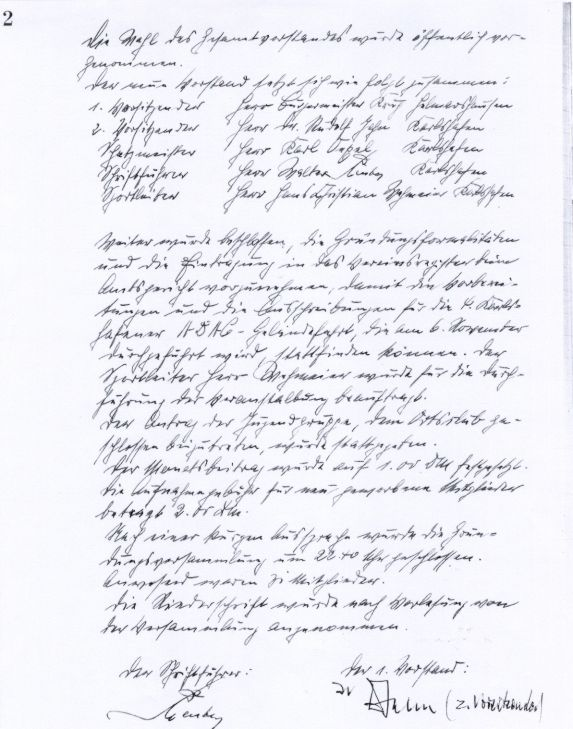 2
Die Wahl des Gesamtvorstandes wurde öffentlich vor-
genommen.
Der neue Vorstand setzt sich wie folgt zusammen:
1. Vorsitzender Herr Bürgermeister Helmarshausen
2. Vorsitzender Herr Dr. Rudolf Jahn Karlshafen
Schatzmeister Herr Karl Karlshafen
Schriftführer Herr Walter Karlshafen
Sportleiter Herr Hans Christian Wehmeier Karlshafen
Weiter wurde beschlossen, die Gründungsformalitäten
und die Eintragung in das Vereinsregister beim
Amtsgericht vorzunehmen, damit die Vorberei-
tungen und die Ausschreibungen für die Karls-
hafener ADAC-Geländefahrt, die am 6. November
durchgeführt wird, stattfinden können. Der
Sportleiter Herr Wehmeier wurde für die Durch-
führung der Veranstaltung beauftragt.
Der Antrag der Jugendgruppe, dem Ortsclub ge-
schlossen beizutreten, wurde stattgegeben.
Der Monatsbeitrag wurde auf 1.00 DM festgesetzt.
Die Aufnahmegebühr für neu geworbene Mitglieder
beträgt 2.00 DM.
Nach einer kurzen Aussprache wurde die Grün-
dungsversammlung um Uhr geschlossen.
Anwesend waren Mitglieder.
Die Niederschrift wurde nach Vorlesung von
der Versammlung angenommen.
Der Schriftführer: Der 1. Vorstand:
Dr Jahn (2. Vorsitzender)